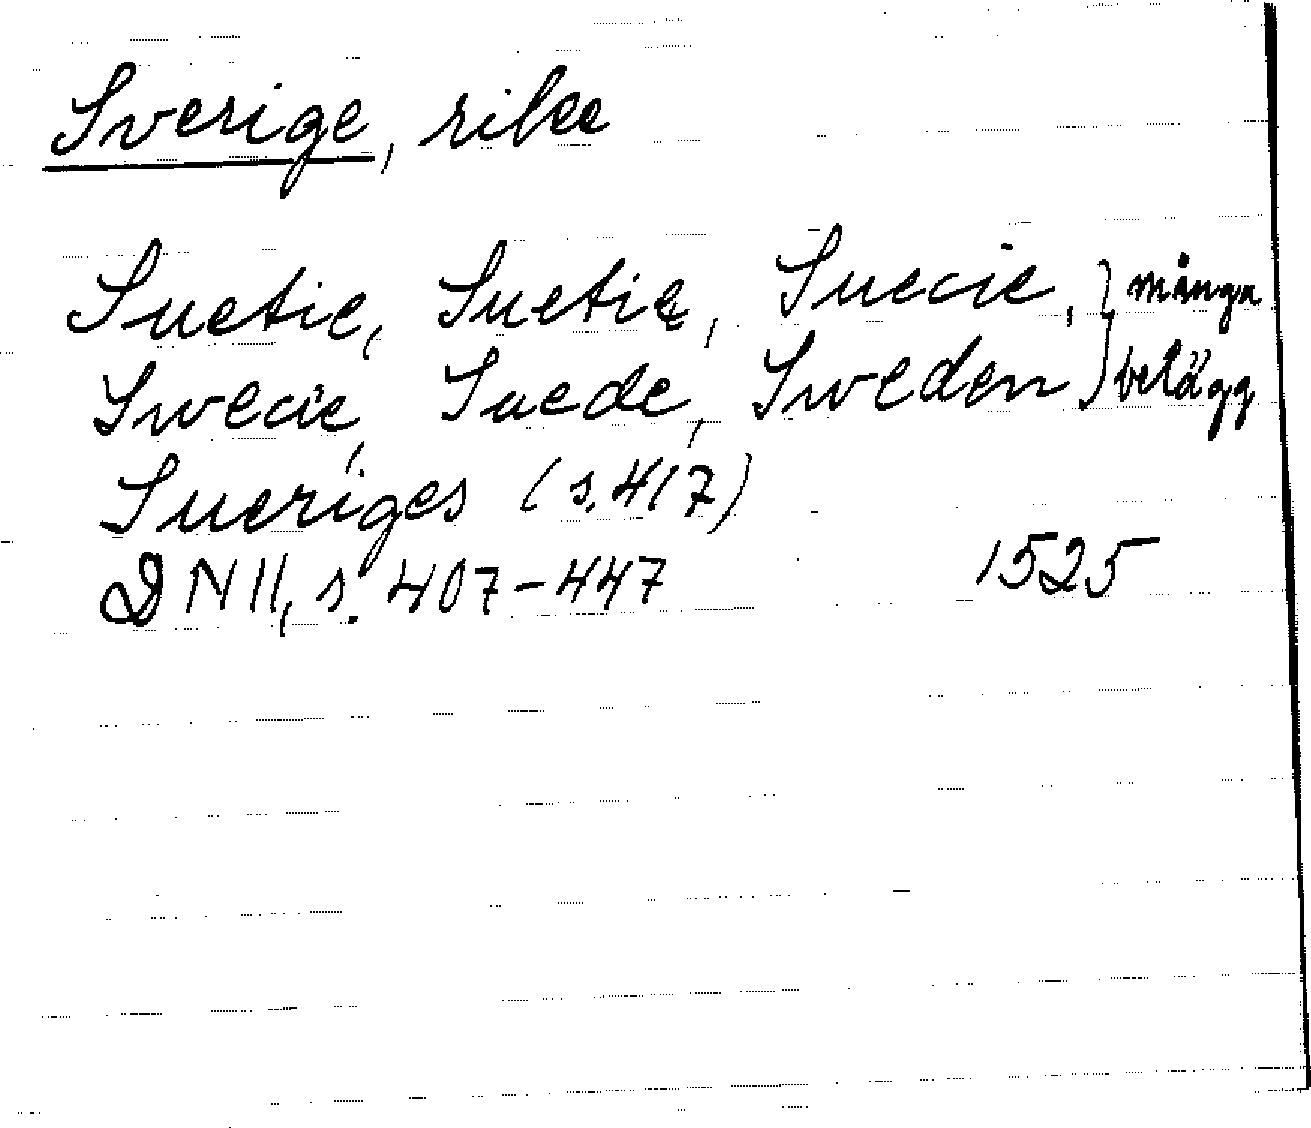 Sverige, rike
Suetie, Suetię, Suecie, } många
Swecie, Suede, Sweden } belägg
Sueriges (s. 417)
DN II, s. 407-447 1525